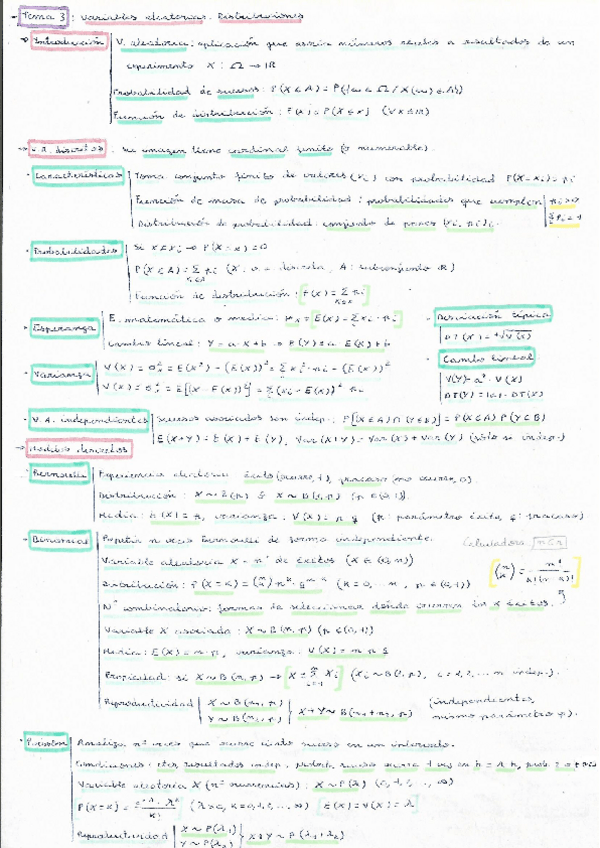 Tema 3: Variables aleatorias. Distribuciones
Introducción
V. aleatoria: aplicación que asocia números reales a resultados de un
experimento X: Ω → ℝ
Probabilidad de sucesos: P(X∈A) = P({ω∈Ω / X(ω)∈A})
Función de distribución: F(x) = P(X≤x) (∀x∈ℝ)
V.A. discretas: su imagen tiene cardinal finito (o numerable).
Características
Toma conjunto finito de valores (xi) con probabilidad P(X=xi) = pi
Función de masa de probabilidad: probabilidades que cumplen
Distribución de probabilidad: conjunto de pares (xi, pi)
Probabilidades
P(X∈A) = Σ pi (X: discreta, A: subconjunto ℝ)
Función de distribución: F(x) = Σ pi
Esperanza
E. matemática o media: μx = E(X) = Σ xi · pi
Cambio lineal: Y = a·X + b → E(Y) = a·E(X) + b
Desviación típica
DT(X) = +√V(X)
Varianza
V(X) = σx² = E(X²) − (E(X))² = Σ xi² · pi − (E(X))²
V(X) = σx² = E[(X − E(X))²] = Σ (xi − E(X))² · pi
Cambio lineal
V(Y) = a² · V(X)
DT(Y) = |a| · DT(X)
V.A. independientes
Sucesos asociados son indep.: P[(X∈A) ∩ (Y∈B)] = P(X∈A) P(Y∈B)
E(X+Y) = E(X) + E(Y), Var(X+Y) = Var(X) + Var(Y) (sólo si indep.)
Modelos discretos
Bernoulli
Experiencia aleatoria: éxito (ocurre, 1), fracaso (no ocurre, 0).
Distribución: X ~ B(1, p) (p∈(0,1)).
Media: E(X) = p, varianza: V(X) = p q (p: parámetro éxito, q: fracaso)
Binomial
Repetir n veces Bernoulli de forma independiente.
Calculadora
Variable aleatoria X = nº de éxitos (X∈(0,n))
Distribución: P(X=k) = (n k) p^k · q^(n−k) (k=0,… n, p∈(0,1))
(n k) = n! / k!(n−k)!
Nº combinatorio: formas de seleccionar dónde ocurren los k éxitos.
Variable X asociada: X ~ B(n, p) (p∈(0,1))
Media: E(X) = n·p, varianza: V(X) = n p q
Propiedad: si X ~ B(n, p) → X = Σ Xi (Xi ~ B(1, p), i=1,2,… n indep.).
Reproductividad
X ~ B(n1, p)
Y ~ B(n2, p)
X+Y ~ B(n1+n2, p)
(independientes,
mismo parámetro p).
Poisson
Analiza nº veces que ocurre cierto suceso en un intervalo.
Variable aleatoria X (nº ocurrencias): X ~ P(λ) (0, 1, 2, …, ∞)
P(X=k) = e^−λ · λ^k / k! (λ>0, k=0,1,2,… ∞) E(X) = V(X) = λ
Reproductividad
X ~ P(λ1)
Y ~ P(λ2)
X+Y ~ P(λ1+λ2)